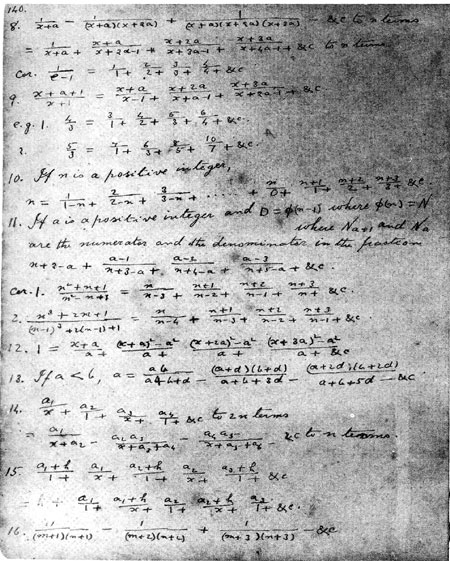 140.
8. 1/(x+a) - 1/((x+a)(x+2a)) + 1/((x+a)(x+2a)(x+3a)) - &c to n terms
= 1/(x+a) + (x+a)/(x+2a-1) + (x+2a)/(x+3a-1) + (x+3a)/(x+4a-1) + &c to n terms
Cor. 1/(e-1) = 1/1+ 2/2+ 3/3+ 4/4+ &c
9. (x+a+1)/(x+1) = (x+a)/(x-1) + (x+2a)/(x+a-1) + (x+3a)/(x+2a-1) + &c.
e.g. 1. 4/3 = 3/1+ 4/2+ 5/3+ 6/4+ &c.
2. 5/3 = 4/1+ 6/3+ 8/5+ 10/7+ &c.
10. If n is a positive integer,
n = 1/(1-n) + 2/(2-n) + 3/(3-n) + ..... + n/0+ (n+1)/1+ (n+2)/2+ (n+3)/3+ &c
11. If a is a positive integer and D = φ(n-1) where φ(n) = N
where N a+1 and N a
are the numerator and the denominator in the fraction
n+2-a + (a-1)/(n+3-a) + (a-2)/(n+4-a) + (a-3)/(n+5-a) + &c.
Cor. 1. (n²+n+1)/(n²-n+1) = n/(n-3) + (n+1)/(n-2) + (n+2)/(n-1) + (n+3)/n + &c.
2. (n³+2n+1)/((n-1)³+2(n-1)+1) = n/(n-4) + (n+1)/(n-3) + (n+2)/(n-2) + (n+3)/(n-1) + &c
12. 1 = (x+a)/a+ ((x+a)²-a²)/a+ ((x+2a)²-a²)/a+ ((x+3a)²-a²)/a+ &c
13. If a < b, a = ab/(a+b+d) - ((a+d)(b+d))/(a+b+3d) - ((a+2d)(b+2d))/(a+b+5d) - &c
14. a₁/x+ a₂/1+ a₃/x+ a₄/1+ &c to 2n terms
= a₁/(x+a₂) - a₂a₃/(x+a₃+a₄) - a₄a₅/(x+a₅+a₆) - &c to n terms.
15. (a₁+h)/1+ a₁/x+ (a₂+h)/1+ a₂/x+ (a₃+h)/1+ &c
= h + a₁/1+ (a₁+h)/x+ a₂/1+ (a₂+h)/x+ a₃/1+ &c.
16. 1/((m+1)(n+1)) - 1/((m+2)(n+2)) + 1/((m+3)(n+3)) - &c